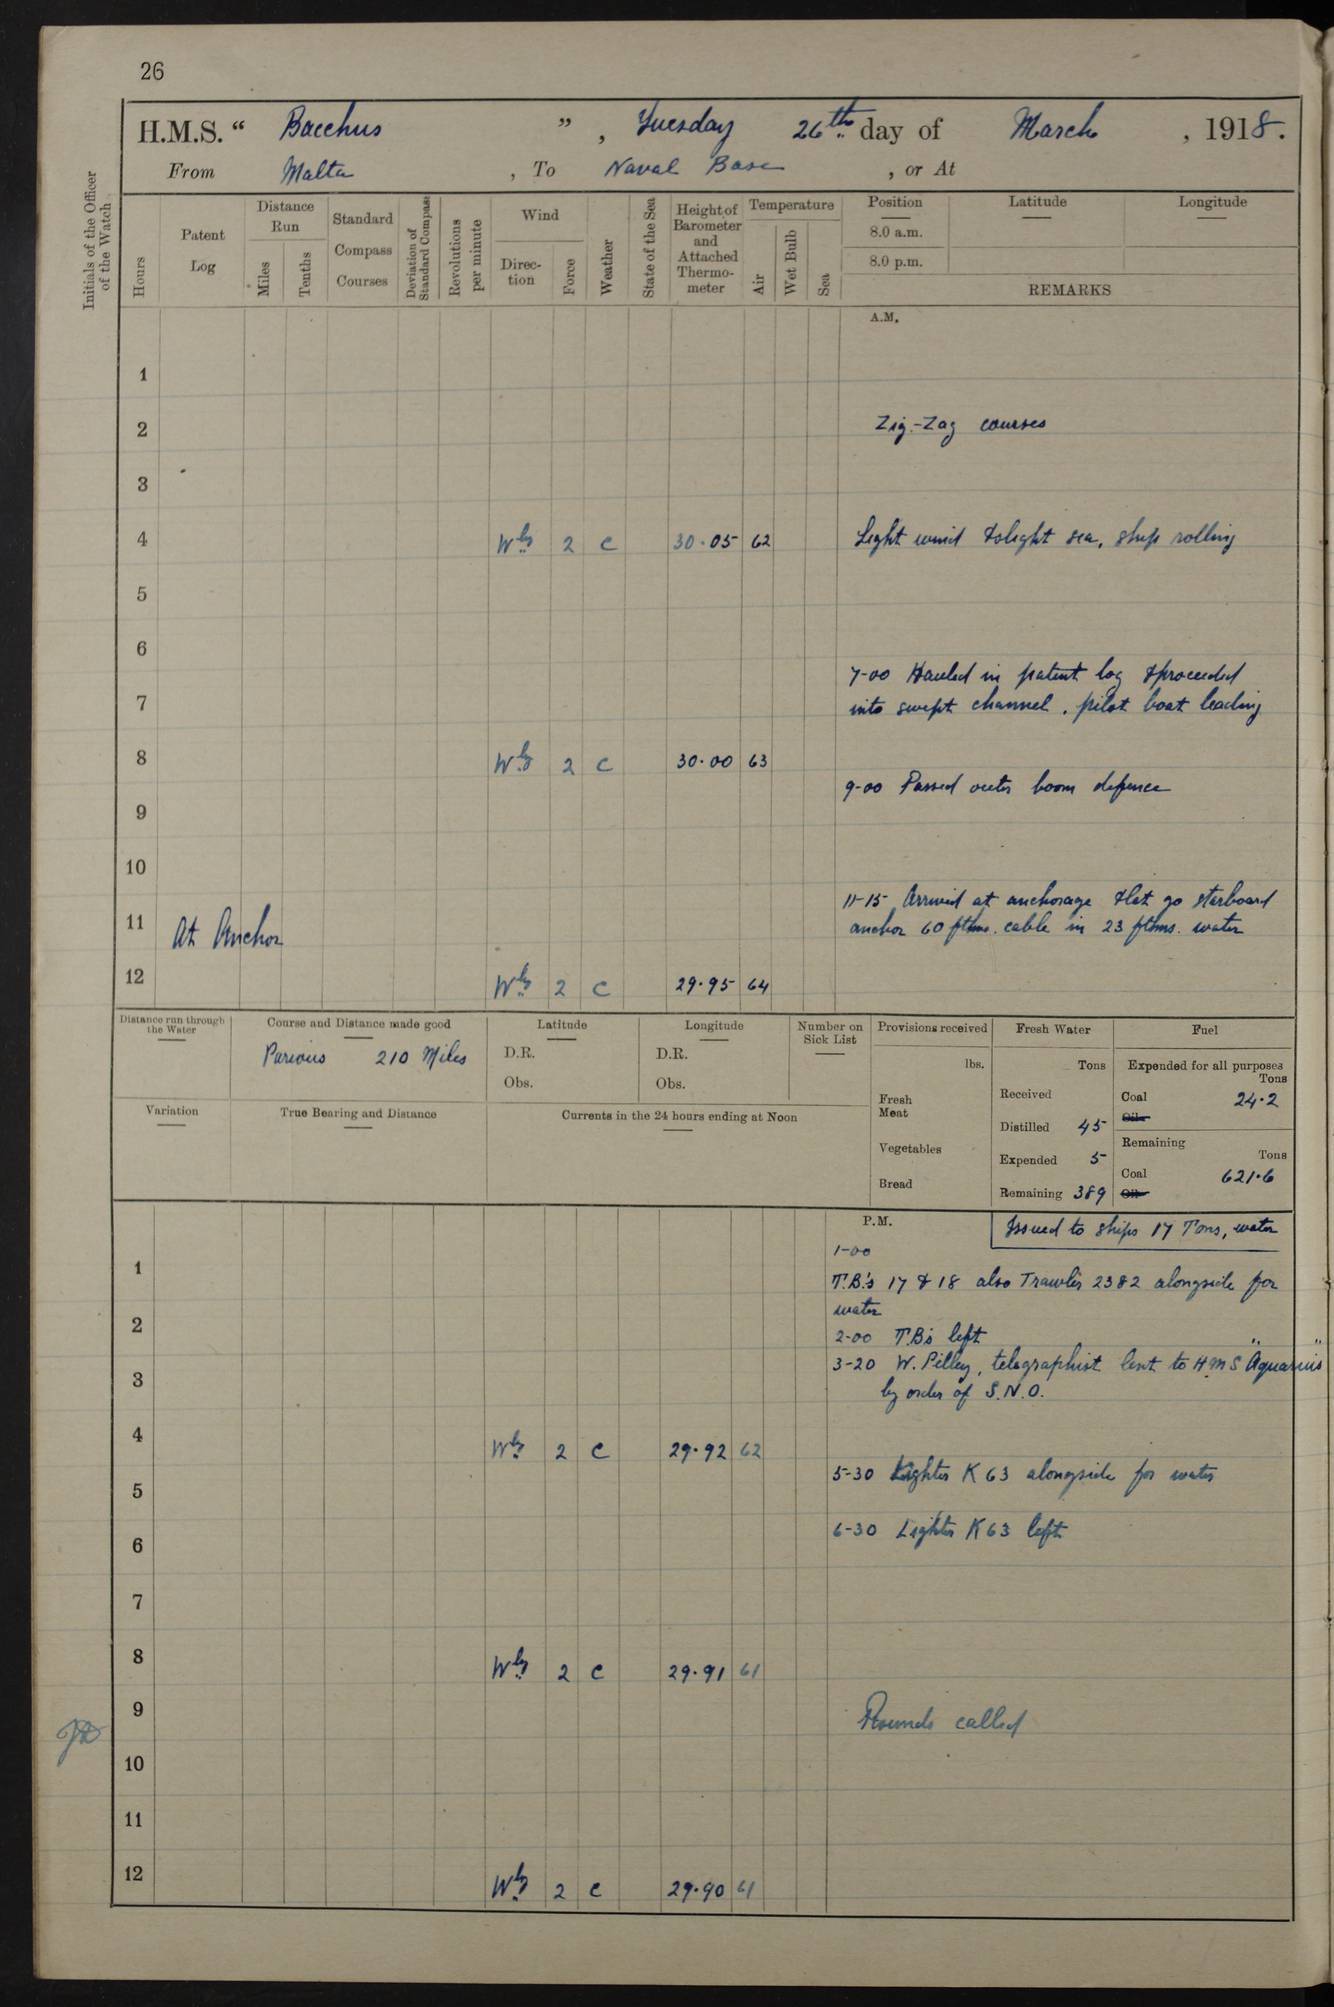 26
H.M.S. “ Bacchus ” , Tuesday 26th day of March , 1918.
From Malta , To Naval Base , or At
Initials of the Officer of the Watch
Hours
Patent Log
Distance Run
Miles
Tenths
Standard Compass Courses
Deviation of Standard Compass
Revolutions per minute
Wind
Direc-tion
Force
Weather
State of the Sea
Height of Barometer and Attached Thermo-meter
Temperature
Air
Wet Bulb
Sea
Position
8.0 a.m.
8.0 p.m.
Latitude
Longitude
REMARKS
A.M.
1
2 Zig-Zag courses
3
4 Wly 2 c 30.05 62 Light wind & slight sea, ship rolling
5
6
7-00 Hauled in patent log & proceeded
7 into swept channel, pilot boat leading
8 Wly 2 c 30.00 63
9-00 Passed outer boom defence
9
10
11-15 Arrived at anchorage & let go starboard
11 At Anchor anchor 60 fthms. cable in 23 fthms. water
12 Wly 2 c 29.95 64
Distance run through the Water
Course and Distance made good
Various 210 Miles
Latitude
D.R.
Obs.
Longitude
D.R.
Obs.
Number on Sick List
Provisions received
lbs.
Fresh Meat
Vegetables
Bread
Fresh Water
Tons
Received
Distilled 45
Expended 5
Remaining 389
Fuel
Expended for all purposes
Tons
Coal 24.2
Oil
Remaining
Tons
Coal 621.6
Oil
Variation
True Bearing and Distance
Currents in the 24 hours ending at Noon
P.M.
Issued to ships 17 Tons, water
1-00
1 T.B.'s 17 & 18 also Trawler 2382 alongside for
water
2
2-00 T.B's left
3-20 W. Pilley, telegraphist lent to H.M.S "Aquarius"
3 by order of S.N.O.
4 Wly 2 c 29.92 62
5-30 Lighter K 63 alongside for water
5
6-30 Lighter K 63 left
6
7
8 Wly 2 c 29.91 61
9 Rounds called
10
11
12 Wly 2 c 29.90 61